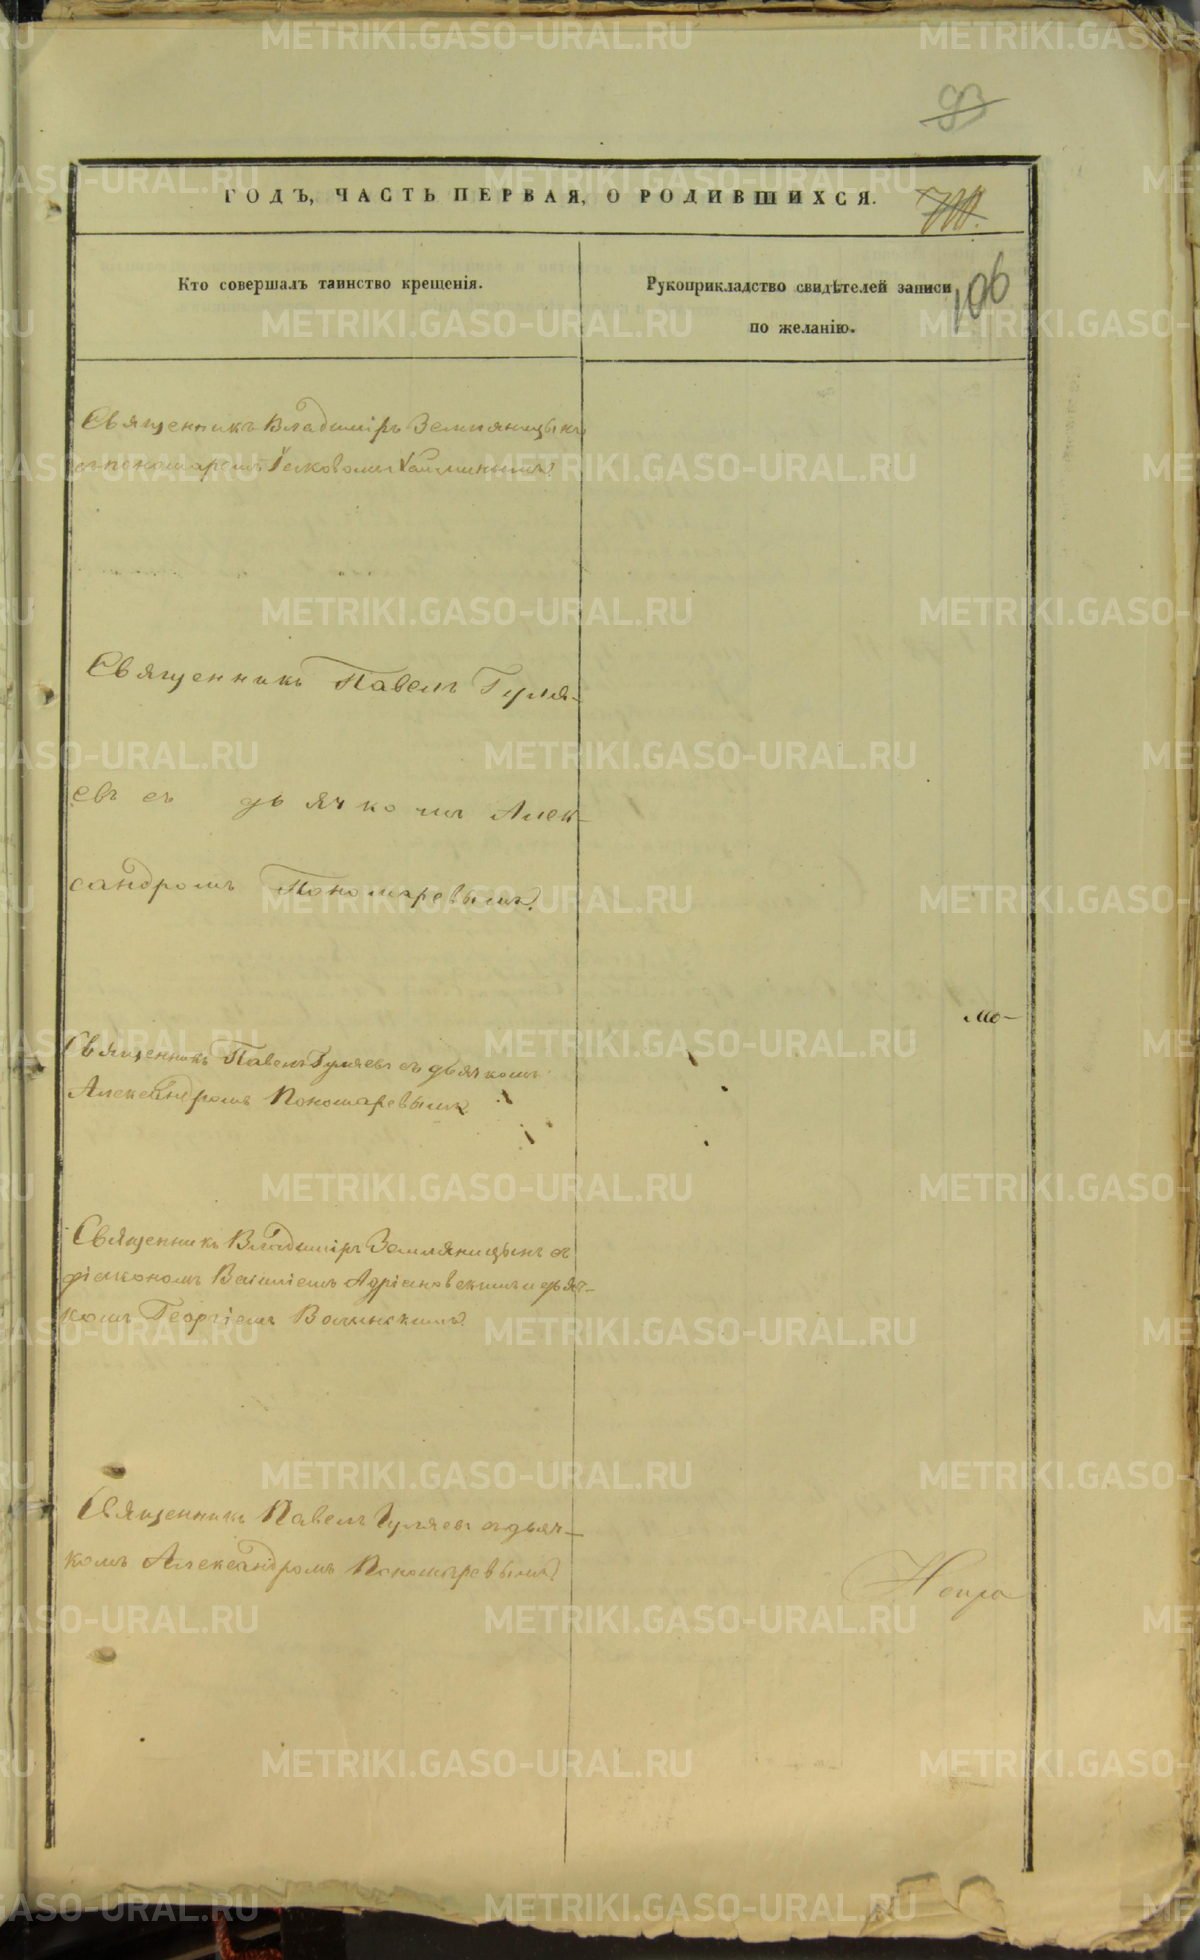 93
ГОДЪ, ЧАСТЬ ПЕРВАЯ, О РОДИВШИХСЯ.
Кто совершалъ таинство крещенія.
Рукоприкладство свидѣтелей записи
по желанію.
106
Священникъ Владиміръ Земляницынъ
съ пономаремъ Іаковомъ
Священникъ Павелъ Гуля-
евъ съ дьячкомъ Алек-
сандромъ Пономаревымъ.
мо-
Священникъ Павелъ Гуляевъ съ дьячкомъ
Александромъ Пономаревымъ
Священникъ Владиміръ Земляницынъ съ
діакономъ Василіемъ Адріановскимъ и дьяч-
комъ Георгіемъ
Священникъ Павелъ Гуляевъ съ дьяч-
комъ Александромъ Пономаревымъ.
METRIKI.GASO-URAL.RU